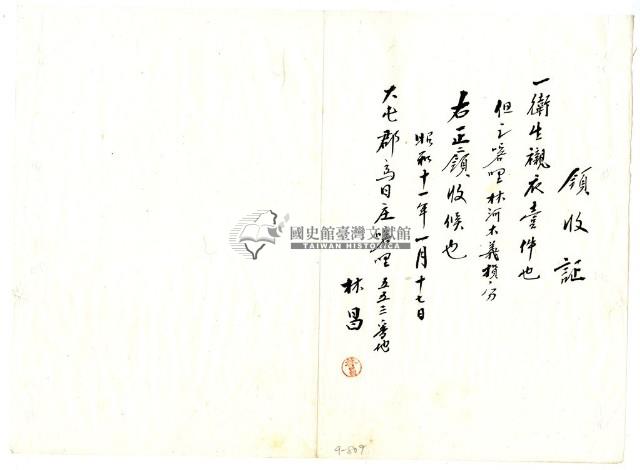 領收証
一衛生襯衣壹件也
但シ喀哩林河木義捐ノ分
右正ニ領收候也
昭和十一年一月十七日
大屯郡烏日庄喀哩五五三番地
林昌
國史館臺灣文獻館
TAIWAN HISTORICA
9-809